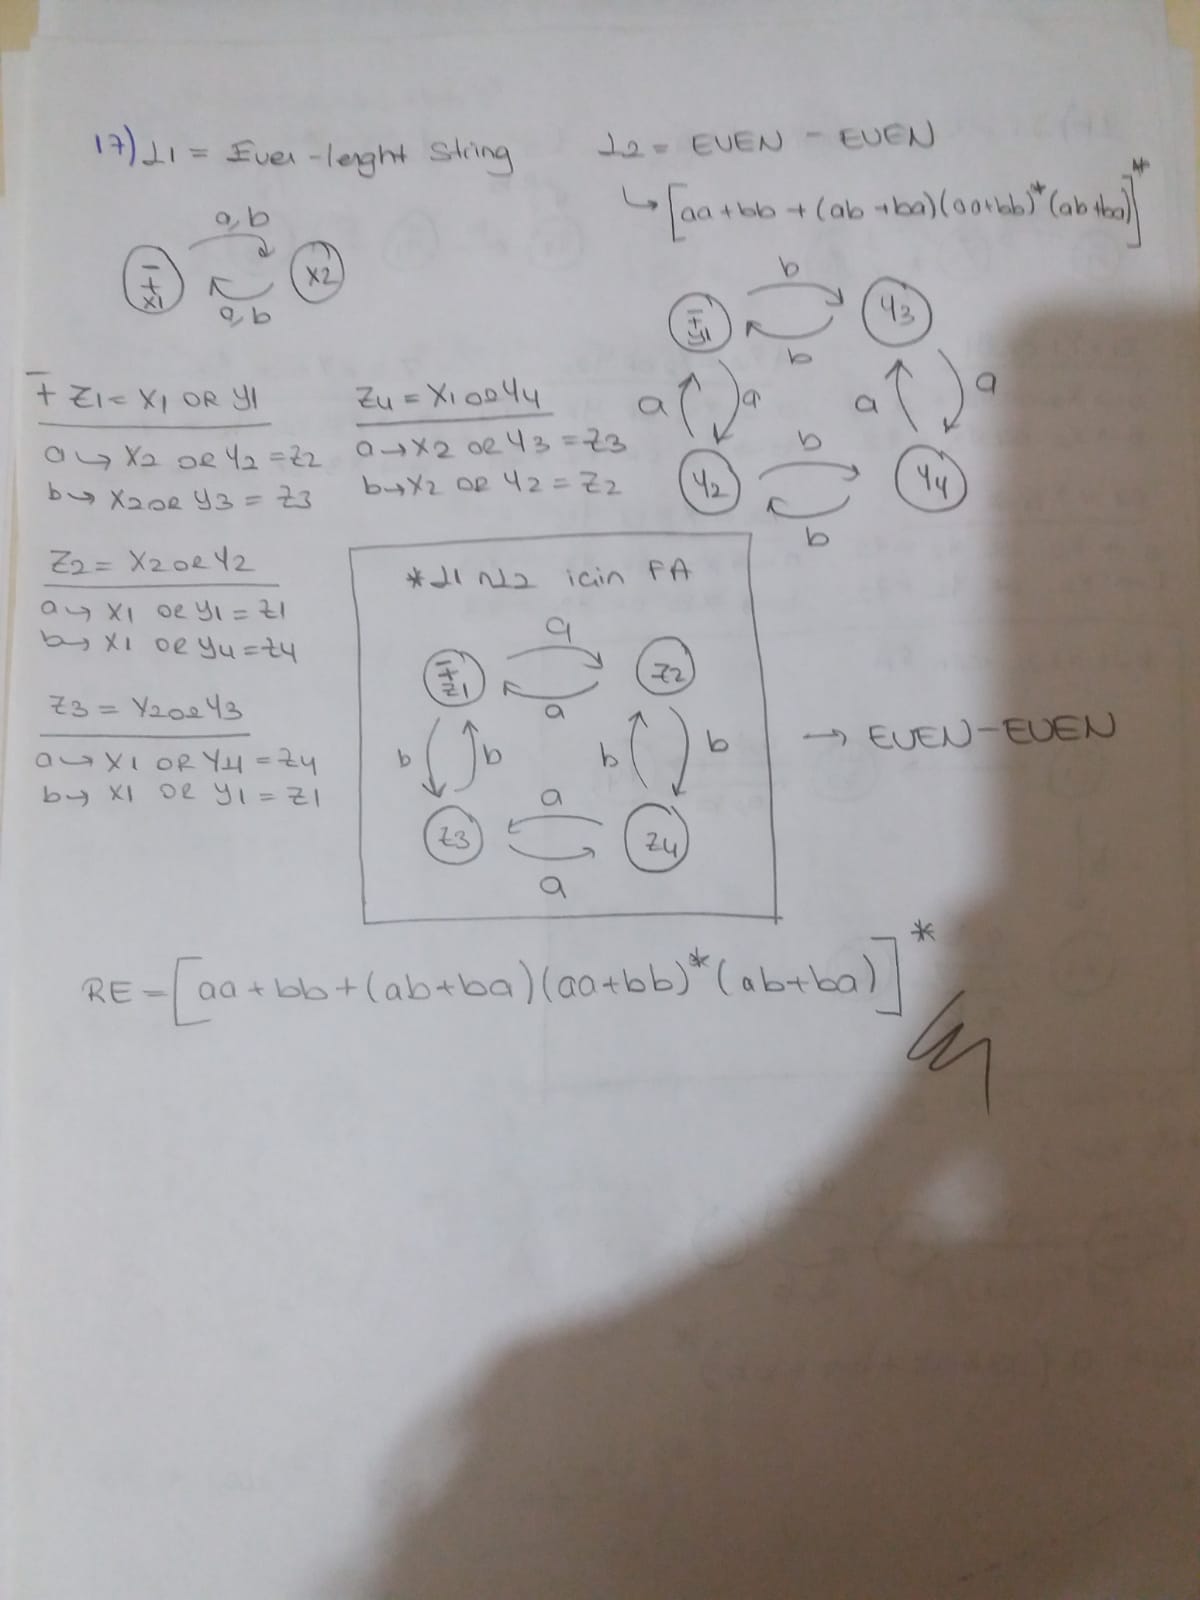 17) L1 = Even-lenght String
L2 = EVEN - EVEN
↳ [aa+bb+(ab+ba)(aa+bb)*(ab+ba)]*
a,b
-
+
x1
x2
a,b
b
-
+
y1
y3
b
a
a
a
a
b
y2
y4
b
-
+ Z1 = X1 OR Y1
a → X2 OR Y2 = Z2
b → X2 OR Y3 = Z3
Z4 = X1 OR Y4
a → X2 OR Y3 = Z3
b → X2 OR Y2 = Z2
Z2 = X2 OR Y2
a → X1 OR Y1 = Z1
b → X1 OR Y4 = Z4
Z3 = Y2 OR Y3
a → X1 OR Y4 = Z4
b → X1 OR Y1 = Z1
* L1 ∩ L2 icin FA
a
-
+
Z1
Z2
a
b
b
b
b
→ EVEN-EVEN
a
Z3
Z4
a
RE = [aa+bb+(ab+ba)(aa+bb)*(ab+ba)]*